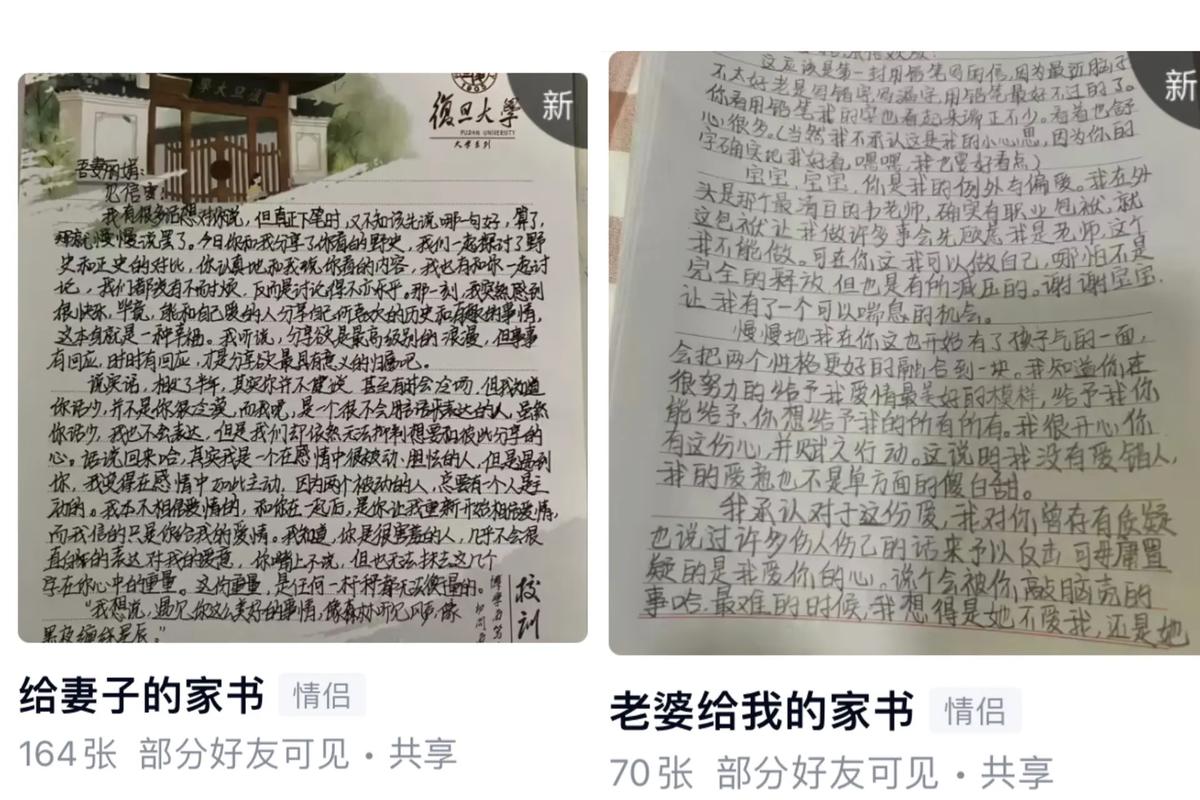 新
學大旦復
1905
復旦大學
FUDAN UNIVERSITY
大学系列
吾妻丽娟:
见信安!
我有很多话想对你说，但真正下笔时，又不知该先说哪一句好，算了，
那就慢慢说罢了。今日你和我分享了你看的野史，我们一起探讨了野
史和正史的对比，你认真地和我说你看的内容，我也有和你一起讨
论，我们都没有不耐烦，反而是讨论得不亦乐乎。那一刻，我突然感到
很快乐，毕竟，能和自己爱的人分享自己所喜欢的历史和有趣的事情，
这本身就是一种幸福。我听说，分享欲是最高级别的浪漫，但事事
有回应，时时有回应，才是分享欲最具有意义的归宿吧。
说实话，相处了半年，其实你并不健谈，甚至有时会冷场，但我知道
你话少，并不是你很冷漠，而我呢，是一个很不会用语言表达的人，虽然
你话少，我也不会表达，但是我们却依然无法抑制想要和彼此分享的
心。话说回来哈，其实我是一个在感情中很被动、胆怯的人，但是遇到
你，我变得在感情中如此主动，因为两个被动的人，总要有一个人是主
动的。我本不相信爱情的，和你在一起后，是你让我重新开始相信爱情，
而我信的只是你给我的爱情。我知道，你是很害羞的人，几乎不会很
直白的表达对我的爱意，你嘴上不说，但也无法抹去这几个
字在你心中的重量。这份重量，是任何一杆秤都无法衡量的。
“我想说，遇见你这么美好的事情，像森林听见风声，像
黑夜缠绵星辰。”
校训
博学而笃
切问
新
这应该是第一封用铅笔写的信，因为最近脑子
不太好老是写错字写漏字，用铅笔最好不过的了。
你看用铅笔我的字也看起来端正不少。看着也舒
心很多。(当然我不承认这是我的小心思，因为你的
字确实比我好看，嘿嘿，我也要好看点)
宝宝，宝宝，你是我的例外与偏爱。我在外
头是那个最清白的书老师，确实有职业包袱，就
这包袱让我做许多事会先顾忌我是老师，这个
我不能做。可在你这我可以做自己，哪怕不是
完全的释放，但也是有所减压的。谢谢宝宝，
让我有了一个可以喘息的机会。
慢慢地我在你这也开始有了孩子气的一面，
会把两个性格更好的融合到一块。我知道你在
很努力的给予我爱情最美好的模样，给予我你
能给予，你想给予我的所有所有。我很开心你
有这份心，并赋之行动。这说明我没有爱错人，
我的爱意也不是单方面的傻白甜。
我承认对于这份爱，我对你曾存有质疑
也说过许多伤人伤己的话来予以反击，可毋庸置
疑的是我爱你的心。说个会被你敲脑壳的
事哈，最难的时候，我想得是她不爱我，还是她
给妻子的家书
情侣
164张 部分好友可见·共享
老婆给我的家书
情侣
70张 部分好友可见·共享